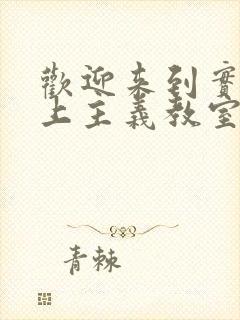 歡迎來到實
上主義教室
青棘